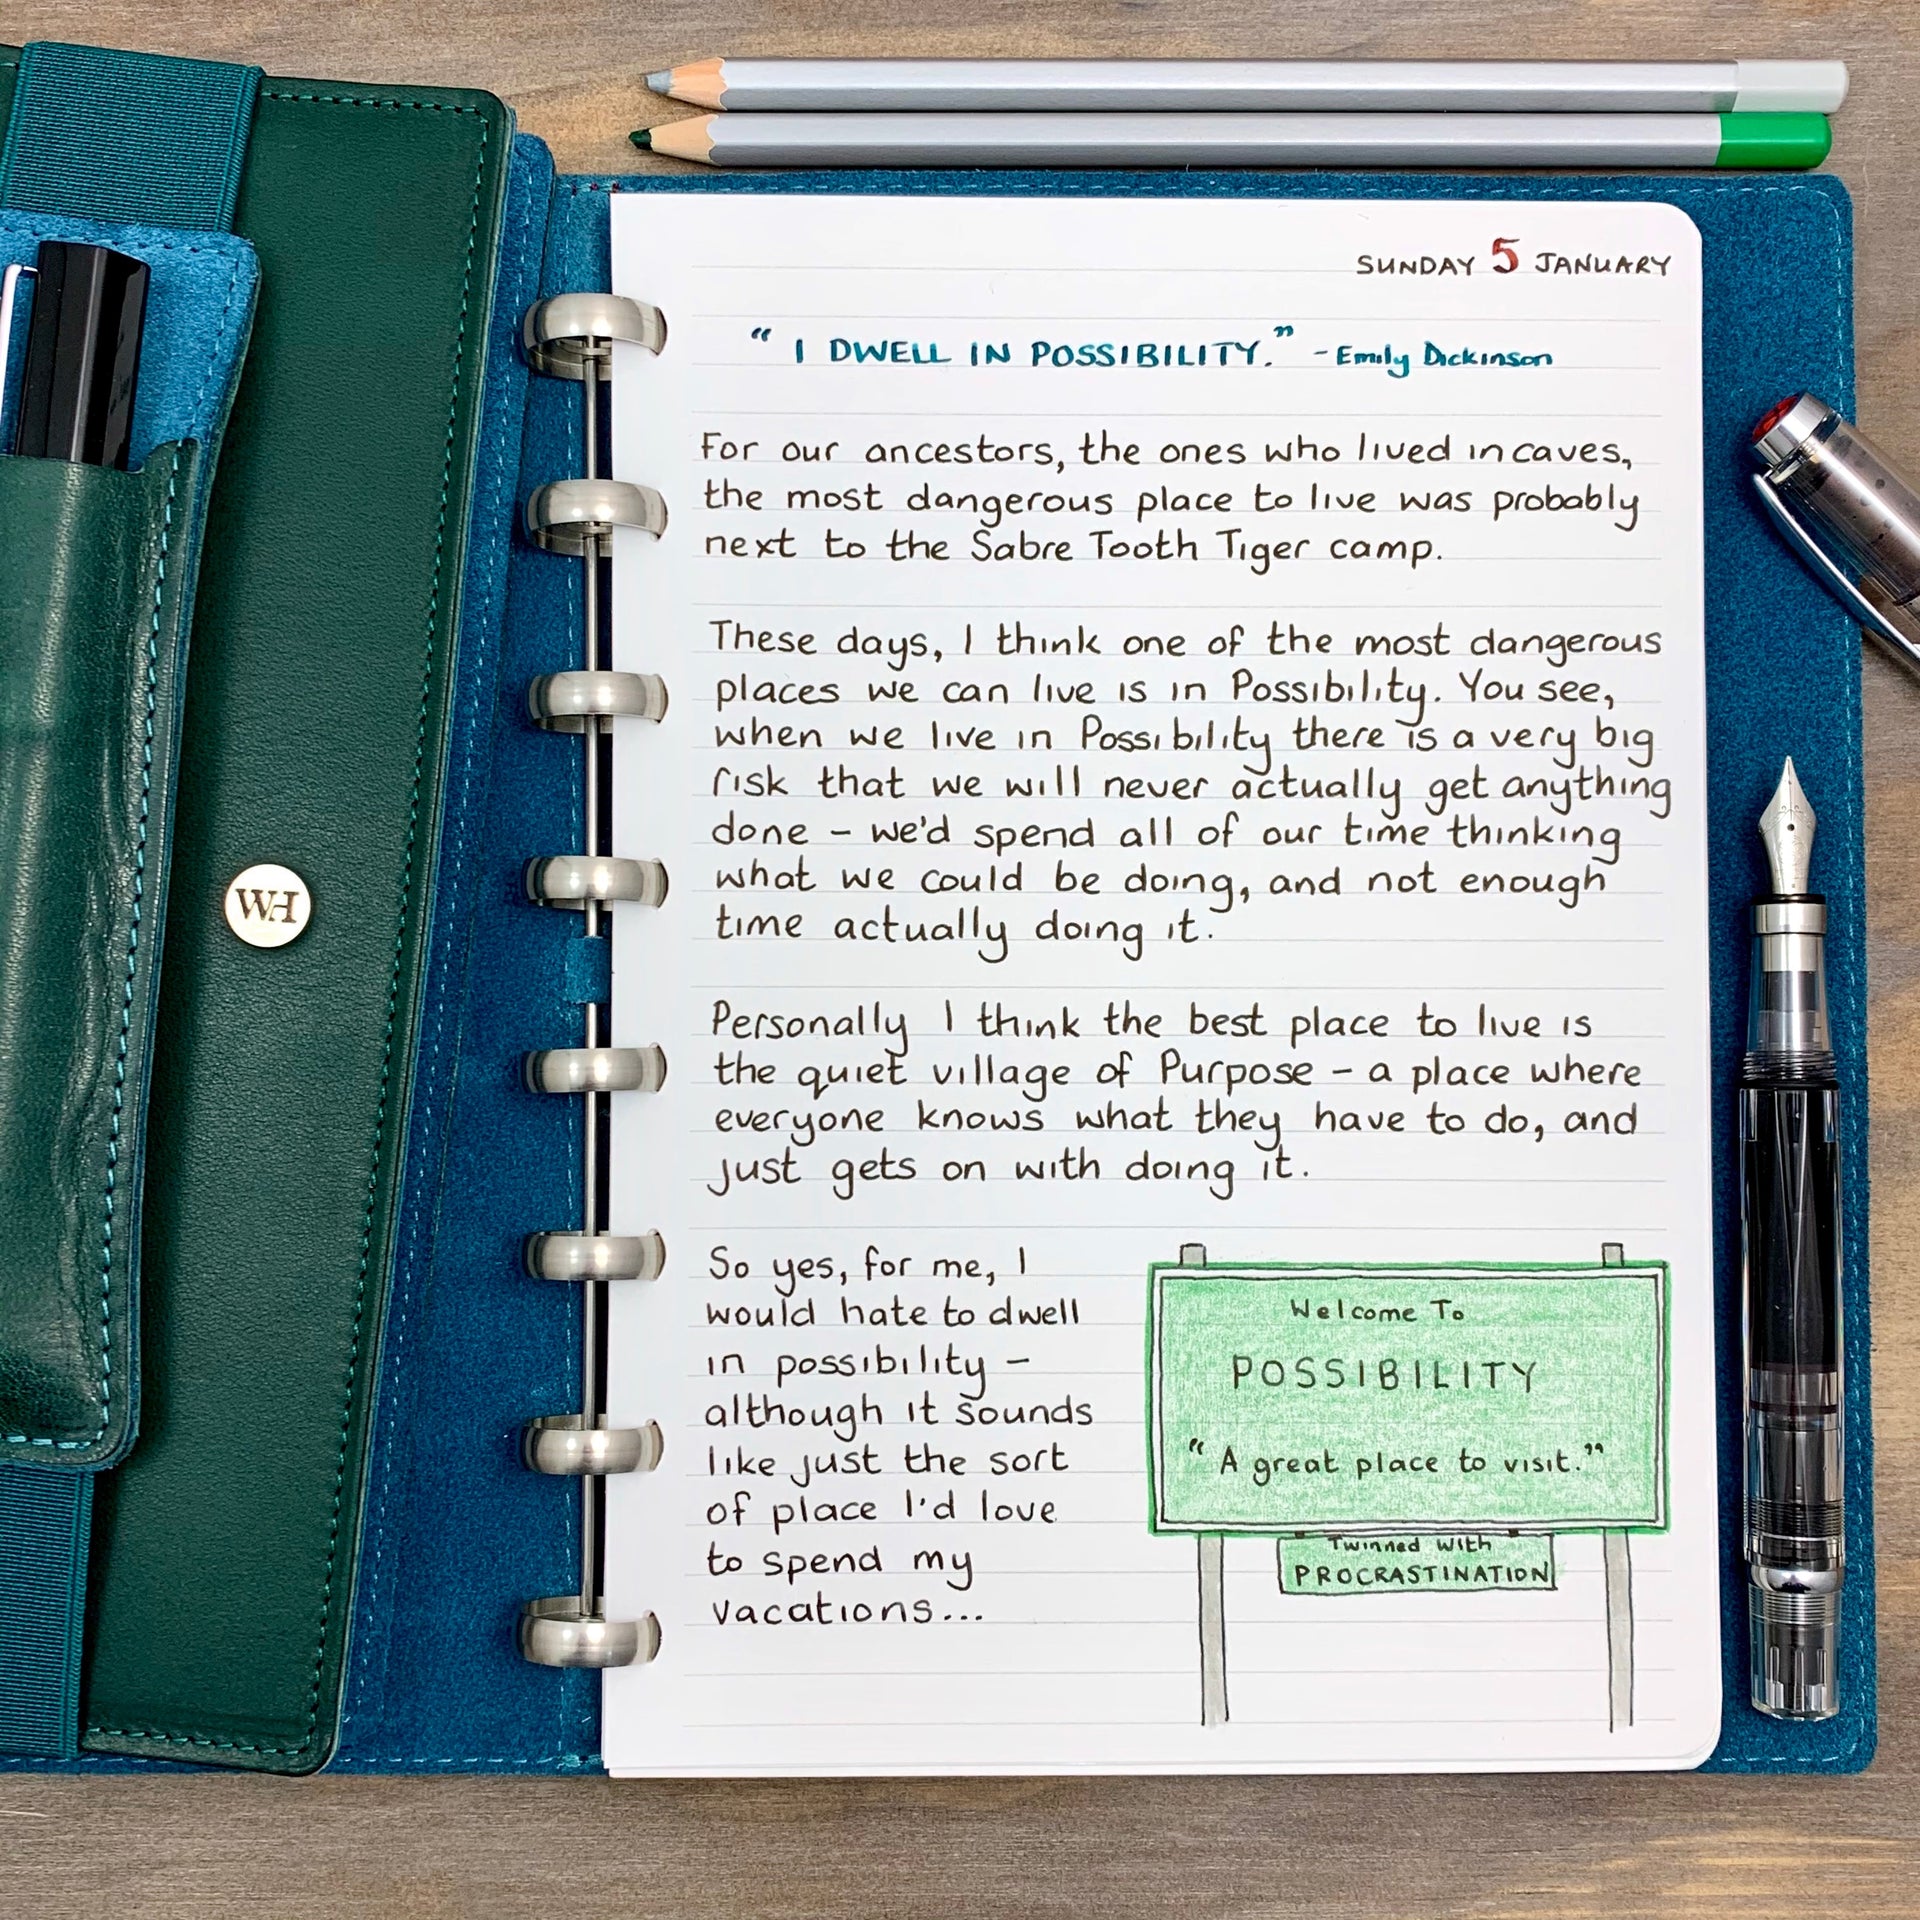 WH
SUNDAY 5 JANUARY
“ I DWELL IN POSSIBILITY.” - Emily Dickinson
For our ancestors, the ones who lived in caves,
the most dangerous place to live was probably
next to the Sabre Tooth Tiger camp.
These days, I think one of the most dangerous
places we can live is in Possibility. You see,
when we live in Possibility there is a very big
risk that we will never actually get anything
done – we'd spend all of our time thinking
what we could be doing, and not enough
time actually doing it.
Personally I think the best place to live is
the quiet village of Purpose – a place where
everyone knows what they have to do, and
just gets on with doing it.
So yes, for me, I
would hate to dwell
in possibility –
although it sounds
like just the sort
of place I'd love
to spend my
vacations...
Welcome To
POSSIBILITY
“ A great place to visit.”
Twinned with
PROCRASTINATION